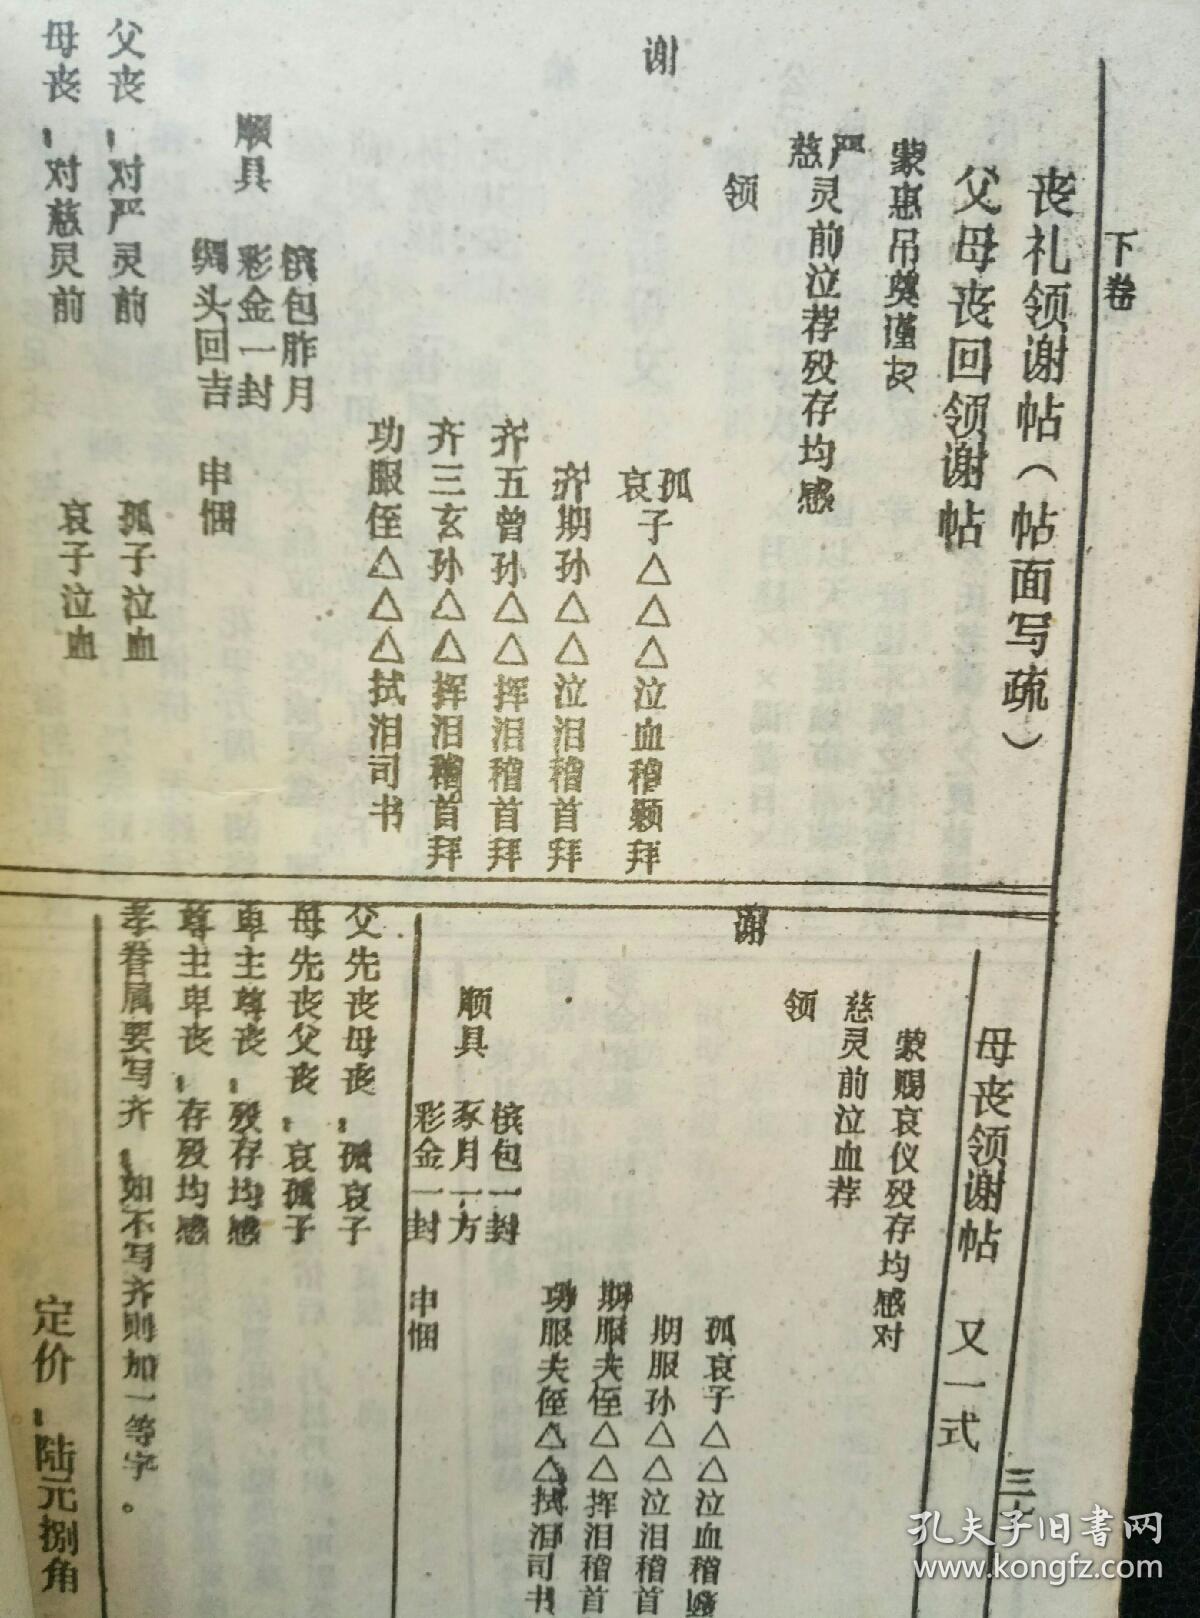 下卷
丧礼领谢帖（帖面写疏）
父母丧回领谢帖
蒙惠吊奠谨
严
慈灵前泣荐殁存均感
领
谢
孤
哀子△△△泣血稽颡拜
齐期孙△△泣泪稽首拜
齐五曾孙△△挥泪稽首拜
齐三玄孙△△挥泪稽首拜
功服侄△△△拭泪司书
顺具
槟包胙月
彩金一封
绸头回吉
申悃
父丧，对严灵前 孤子泣血
母丧，对慈灵前 哀子泣血
母丧领谢帖 又一式
三
蒙赐哀仪殁存均感对
慈灵前泣血荐
领
谢
孤哀子△△泣血稽
期服孙△△泣泪稽首
期服夫侄△△挥泪稽首
功服夫侄△△拭泪司书
顺具
槟包一封
豕月一方
彩金一封
申悃
父先丧母丧，孤哀子
母先丧父丧，哀孤子
卑主尊丧，殁存均感
尊主卑丧，存殁均感
孝眷属要写齐，如不写齐则加一等字。
定价，陆元捌角
孔夫子旧书网
www.kongfz.com